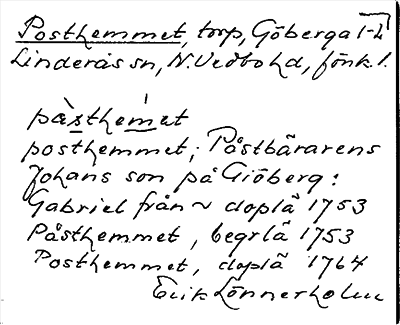 Posthemmet, torp, Göberga 1-4
Linderås sn, N. Vedbo hd, Jönk. l.
pàsthemet
posthemmet; Påstbärarens
Johans son på Giöberg:
Gabriel från ~ doplä 1753
Påsthemmet, begrlä 1753
Posthemmet, doplä 1764
Erik Lönnerholm